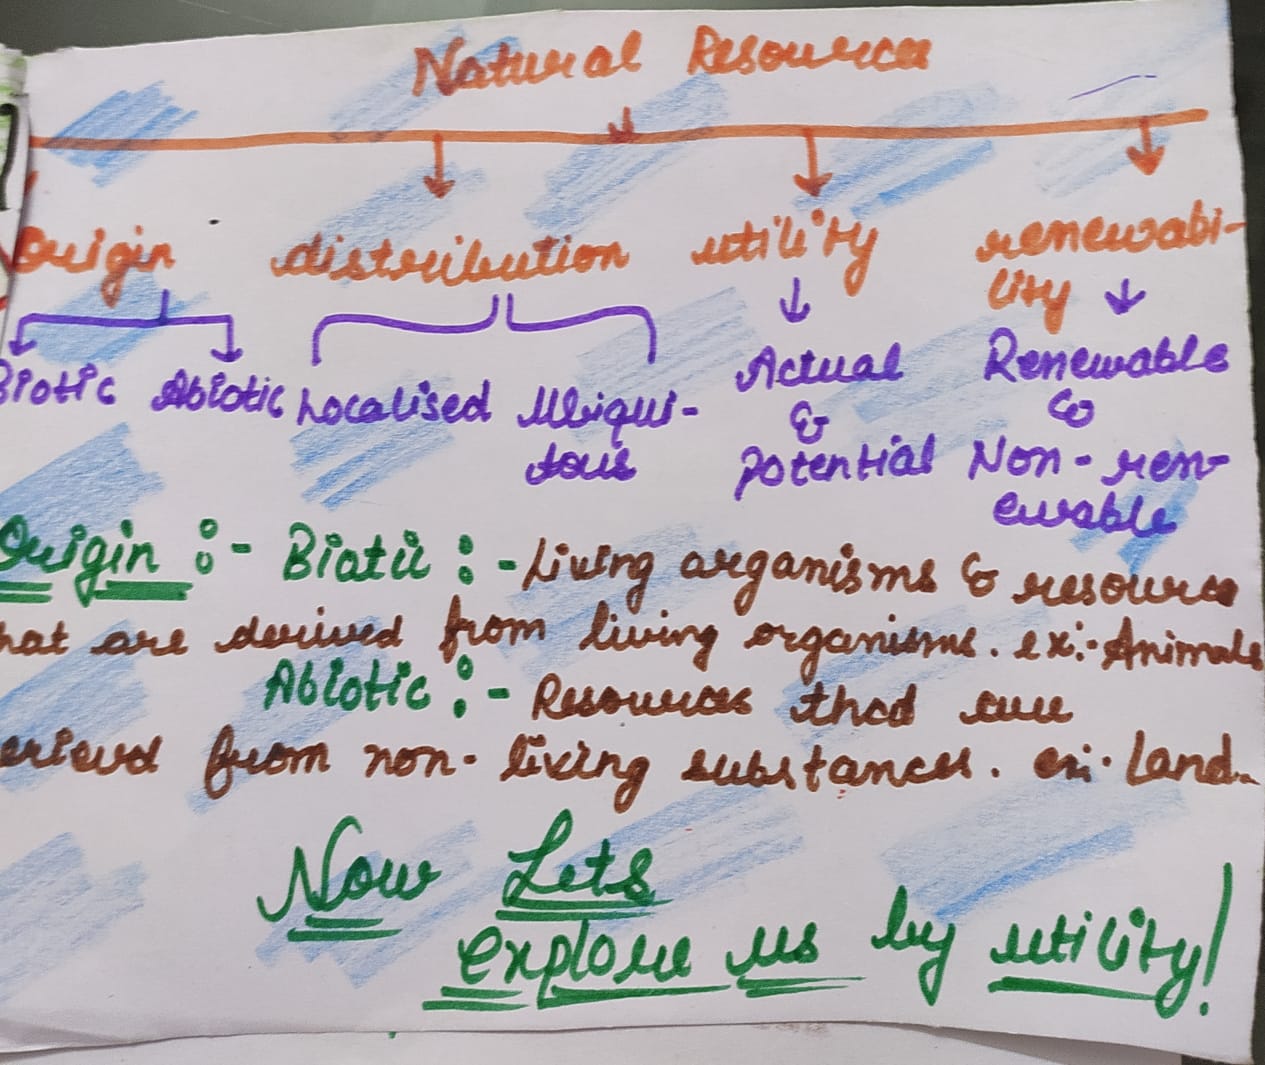 Natural Resources
Origin distribution utility renewabi-
lity
Biotic Abiotic Localised Ubiqui-
tous
Actual
&
Potential
Renewable
&
Non-ren-
ewable
Origin :- Biotic :- Living organisms & resources
hat are derived from living organisms. ex:- Animals
Abiotic :- Resources that are
erieved from non-living substances. ex:- Land.
Now Lets
explore us by utility!